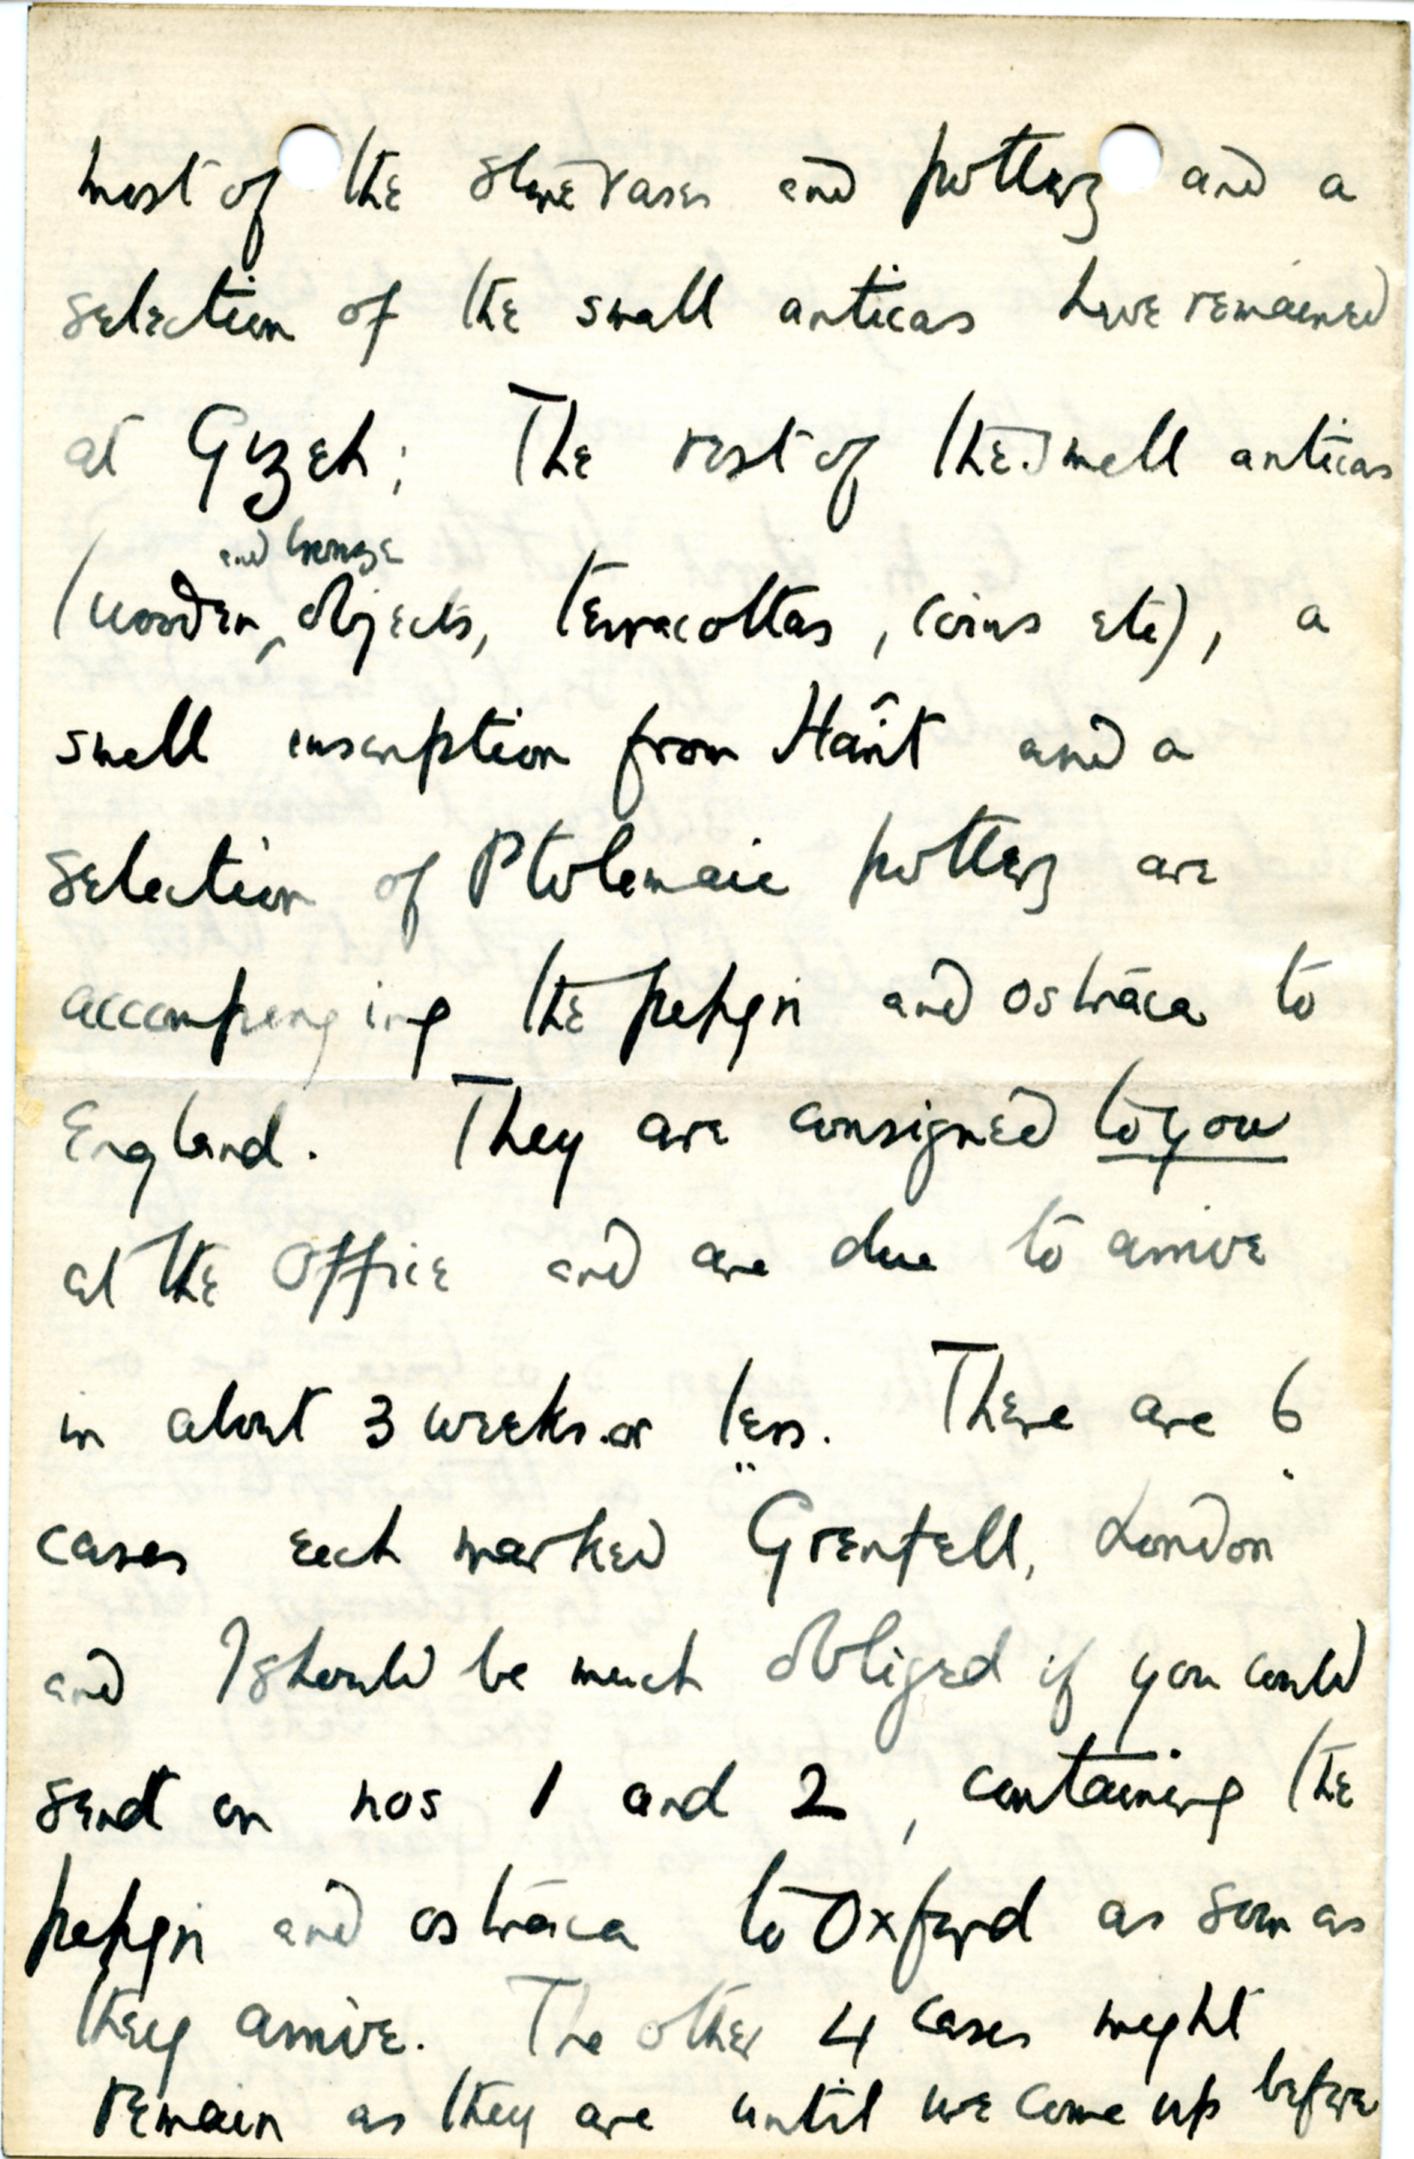 most of the stone vases and pottery and a
selection of the small anticas have remained
at Gizeh; The rest of the small anticas
and bronze
(wooden ^ objects, terracottas, coins etc), a
small inscription from Harît and a
selection of Ptolemaic pottery are
accompanying the papyri and ostraca to
England. They are consigned to you
at the office and are due to arrive
in about 3 weeks or less. There are 6
cases each marked "Grenfell, London"
and I should be much obliged if you could
send on nos 1 and 2, containing the
papyri and ostraca to Oxford as soon as
they arrive. The other 4 cases might
remain as they are until we come up before